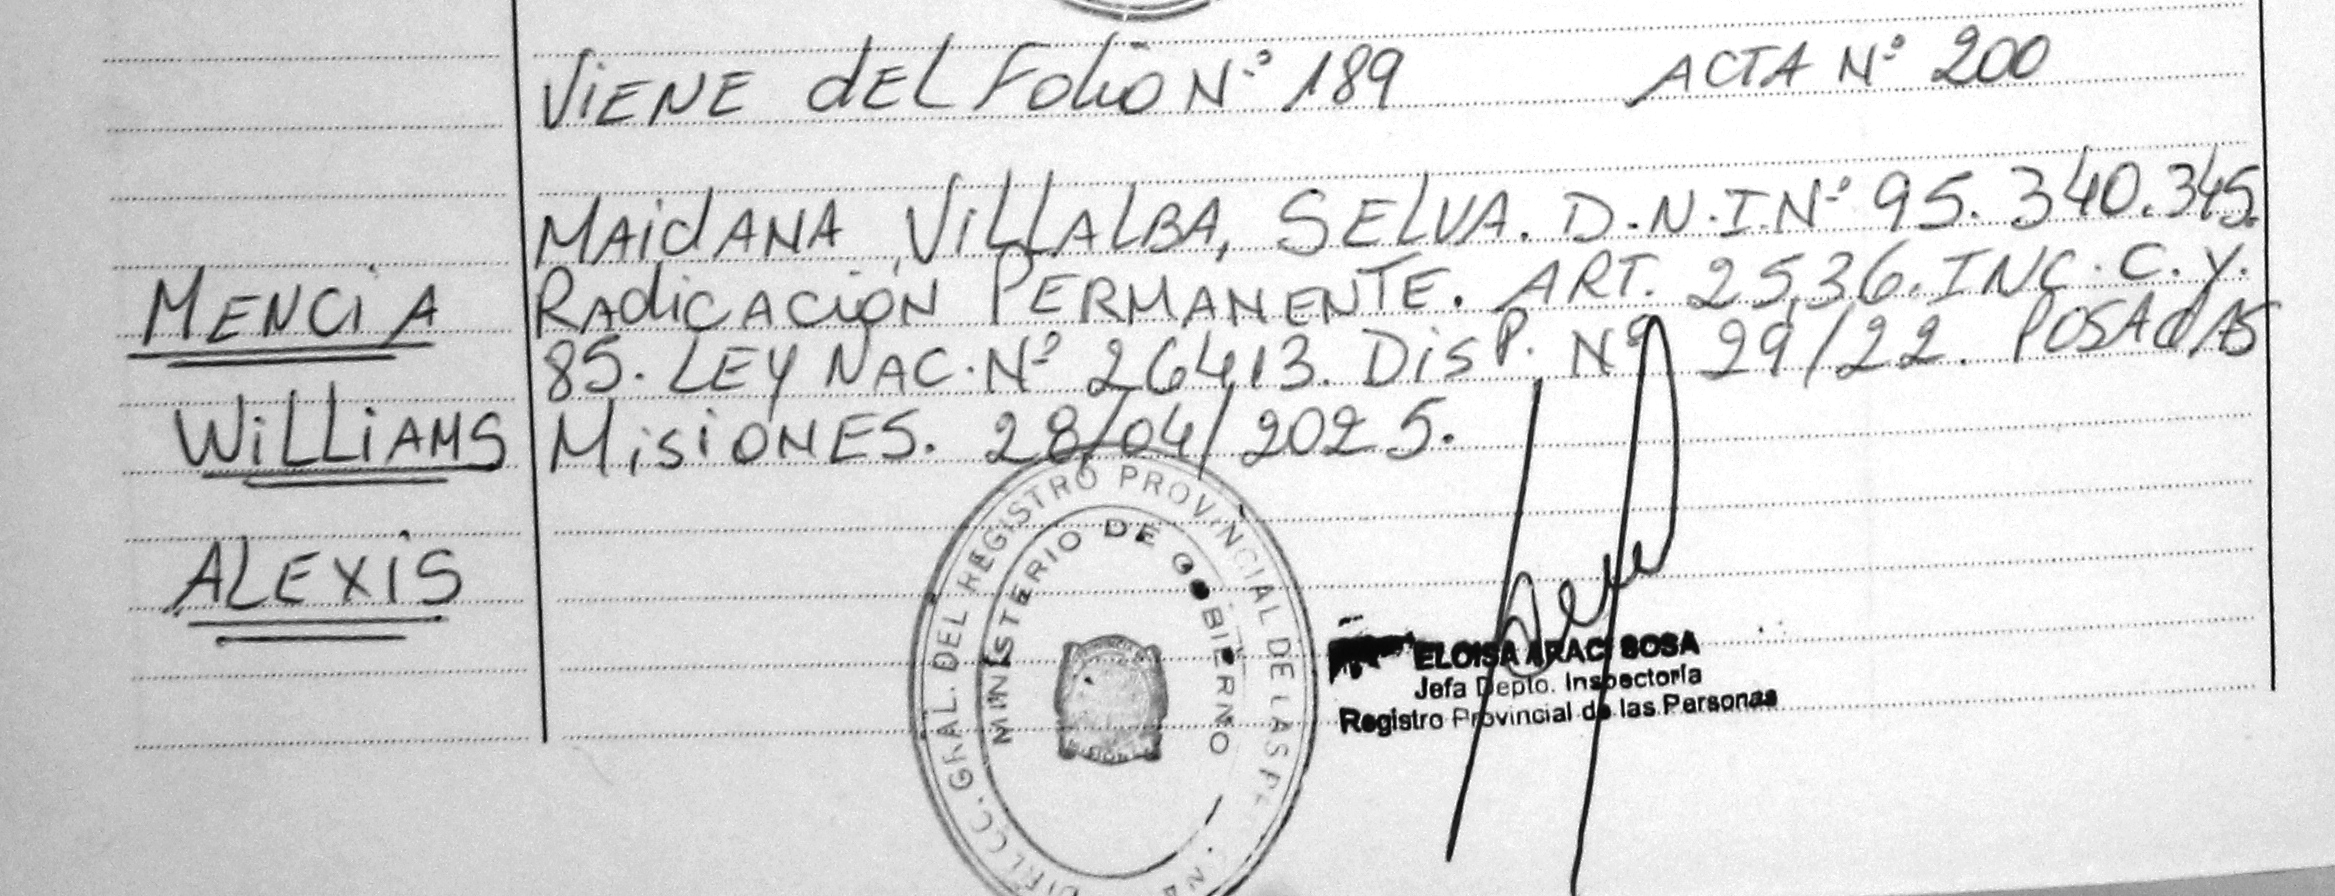 ViENE dEL FoLio N.º 189 ACTA Nº 200
MAidANA, ViLLALBA, SELVA. D.N.I.Nº 95.340.345.
MENCiA
RAdiCACiÓN PERMANENTE. ART. 25,36.INC.C.Y.
85. LEY NAC.Nº 26413. DiSP. Nº 29/22. POSAdAS
WiLLiAMS
MiSiONES. 28/04/2025.
ALEXiS
DIRECC. GRAL. DEL REGISTRO PROVINCIAL DE LAS
MINISTERIO DE GOBIERNO
ELOISA ARACI SOSA
Jefa Depto. Inspectoría
Registro Provincial de las Personas